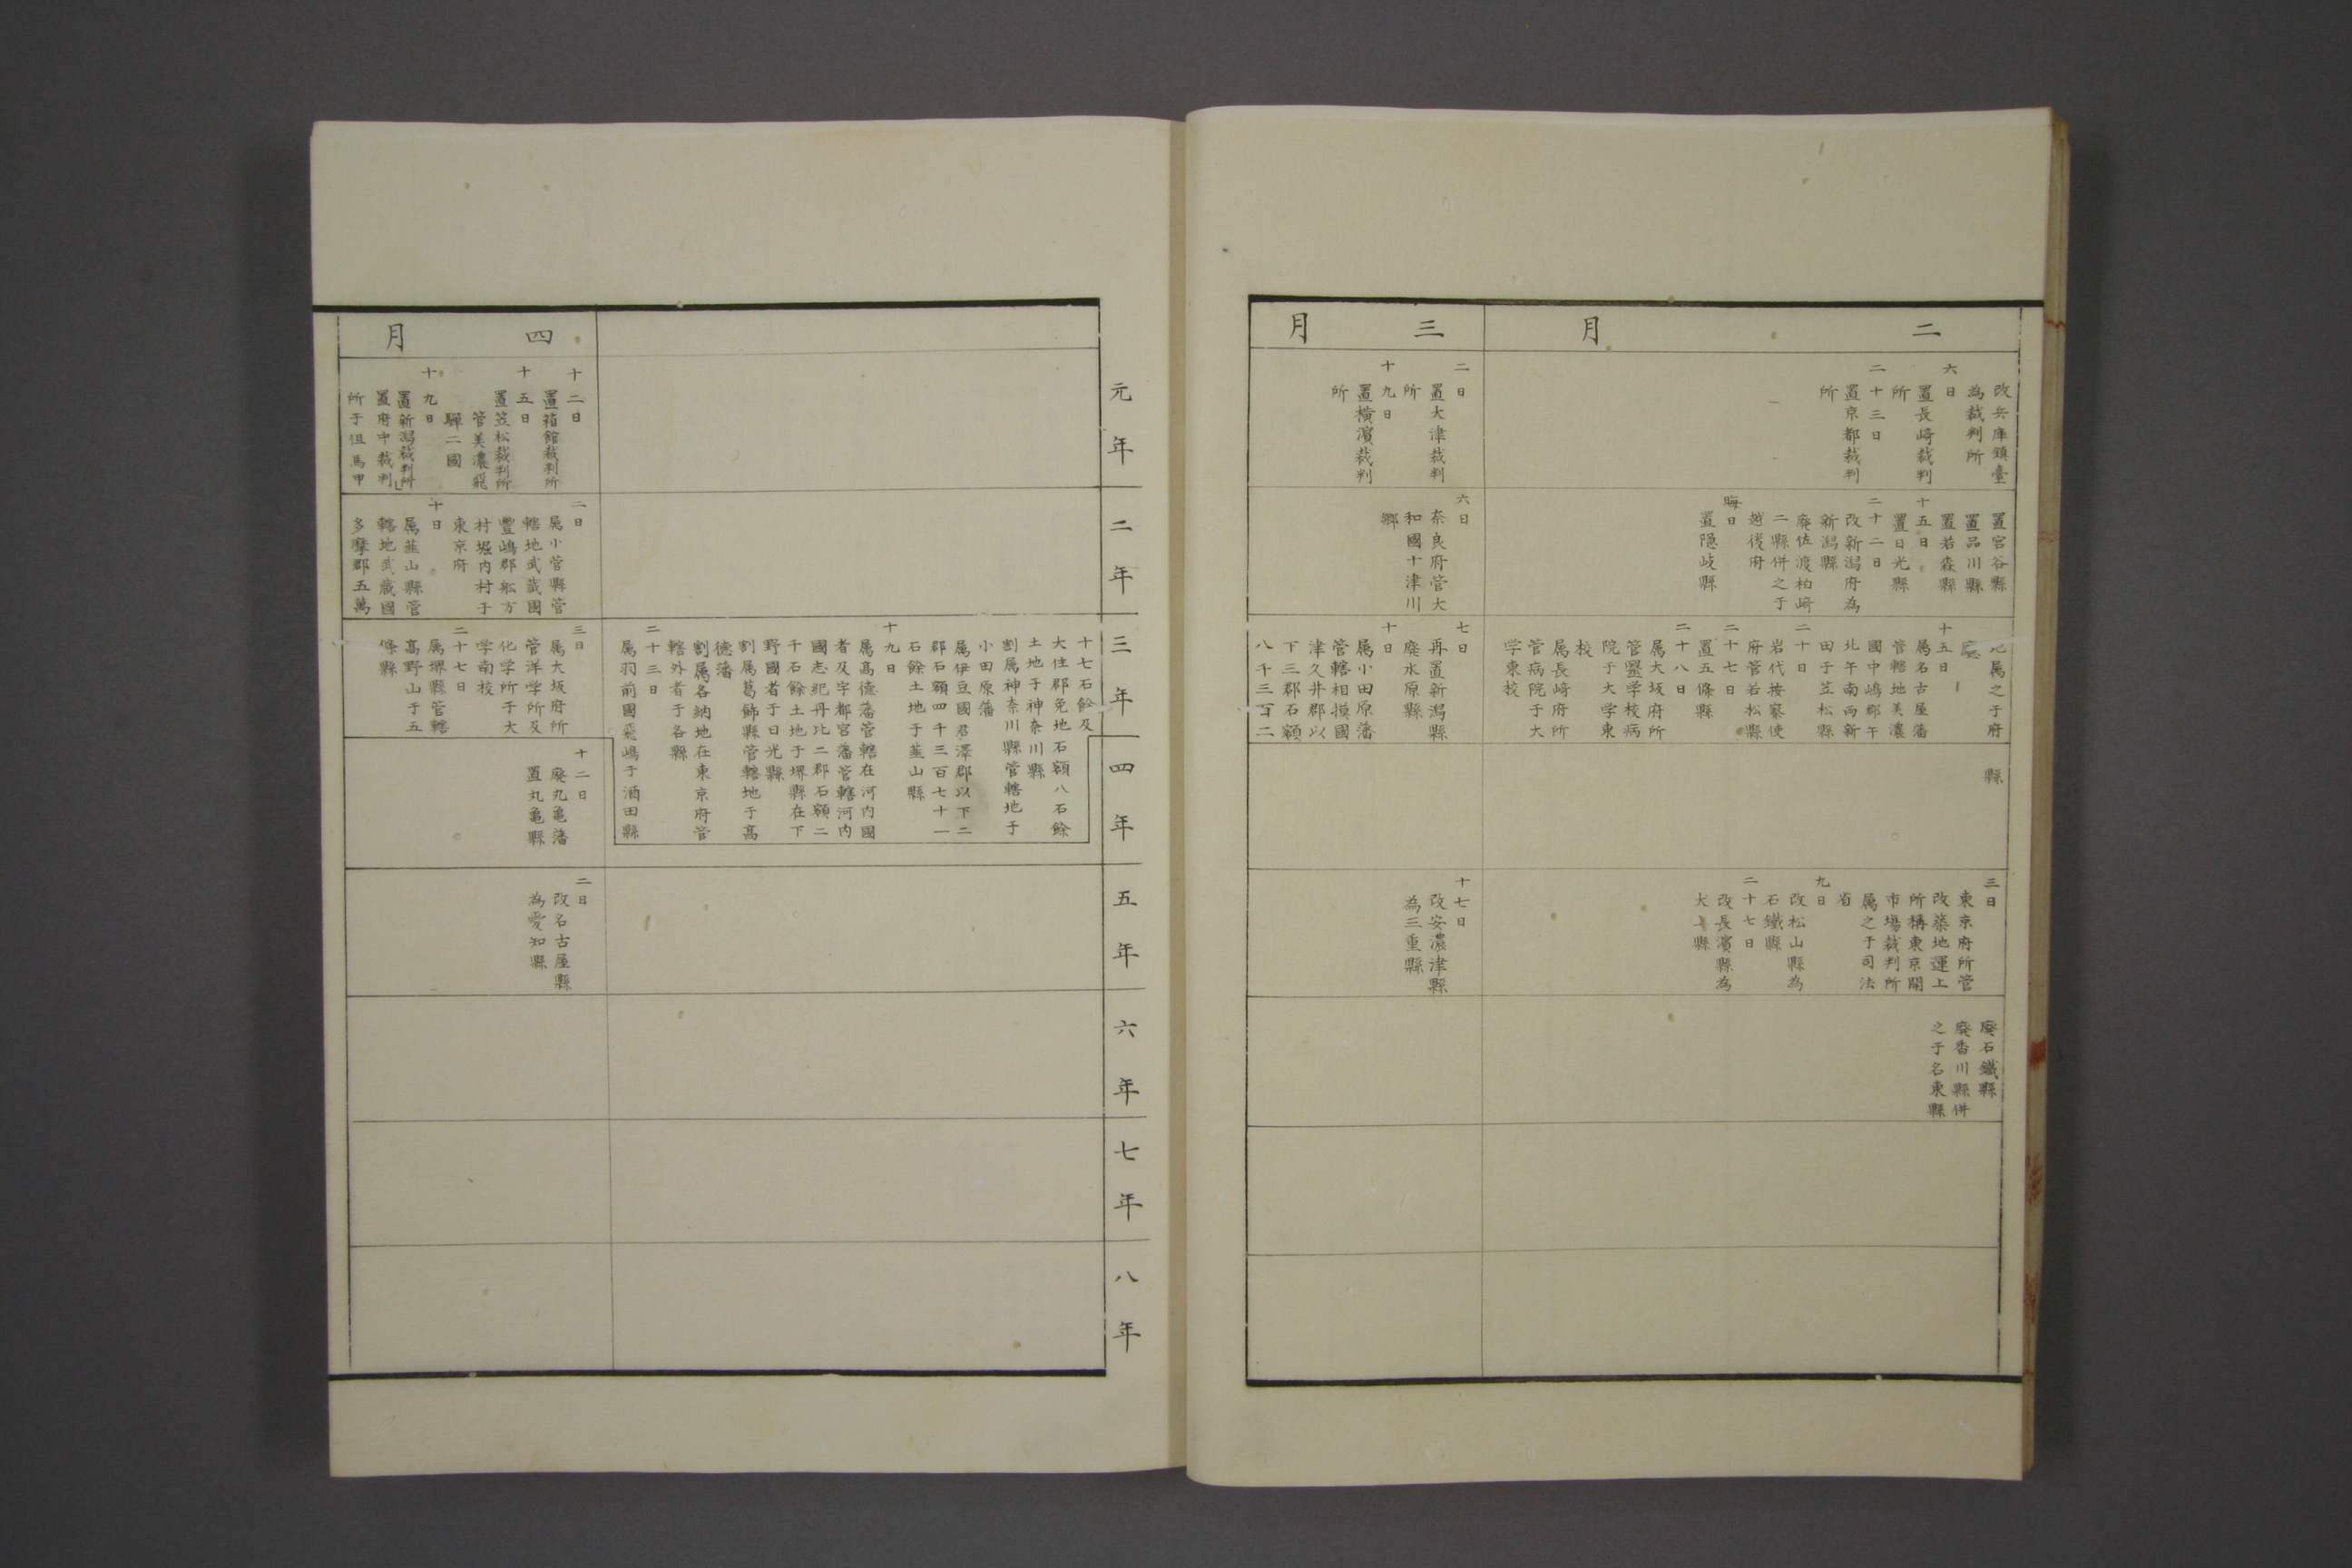 二月
改兵庫鎮臺
為裁判所
六日
置長﨑裁判
所
二十三日
置京都裁判
所
置宮谷縣
置品川縣
置若森縣
十五日
置日光縣
二十二日
改新潟府為
新潟縣
廃佐渡柏﨑
二縣併之于
越後府
晦日
置隠岐縣
地属之于府
廳
十五日
属名古屋藩
管轄地美濃
國中嶋郡午
北午南両新
田于笠松縣
二十日
岩代按察使
府管若松縣
二十七日
置五條縣
二十八日
属大坂府所
管毉学校病
院于大学東
校
属長﨑府所
管病院于大
学東校
縣
三日
東京府所管
改築地運上
所稱東京開
市場裁判所
属之于司法
省
九日
改松山縣為
石鐵縣
二十七日
改長濱縣為
犬上縣
廃石鐵縣
廃香川縣併
之于名東縣
三月
二日
置大津裁判
所
十九日
置横濱裁判
所
六日
奈良府管大
和國十津川
郷
七日
再置新潟縣
廃水原縣
十日
属小田原藩
管轄相摸國
津久井郡以
下三郡石額
八千三百二
十七日
改安濃津縣
為三重縣
元年
二年
三年
四年
五年
六年
七年
八年
十七石餘及
大住郡免地石額八石餘
土地于神奈川縣
割属神奈川縣管轄地于
小田原藩
属伊豆國君澤郡以下二
郡石額四千三百七十一
石餘土地于韮山縣
十九日
属髙徳藩管轄在河内國
者及宇都宮藩管轄河内
國志紀丹比二郡石額二
千石餘土地于堺縣在下
野國者于日光縣
割属葛飾縣管轄地于髙
徳藩
割属各納地在東京府管
轄外者于各縣
二十三日
属羽前國飛嶋于酒田縣
四月
十二日
置箱館裁判所
十五日
置笠松裁判所
管美濃飛
驒二國
十九日
置新潟裁判所
置府中裁判
所于但馬甲
二日
属小菅縣管
轄地武蔵國
豐嶋郡舩方
村堀内村于
東京府
十日
属韮山縣管
轄地武蔵國
多摩郡五萬
三日
属大坂府所
管洋学所及
化学所于大
学南校
二十七日
属堺縣管轄
髙野山于五
條縣
十二日
廃丸亀藩
置丸亀縣
二日
改名古屋縣
為愛知縣